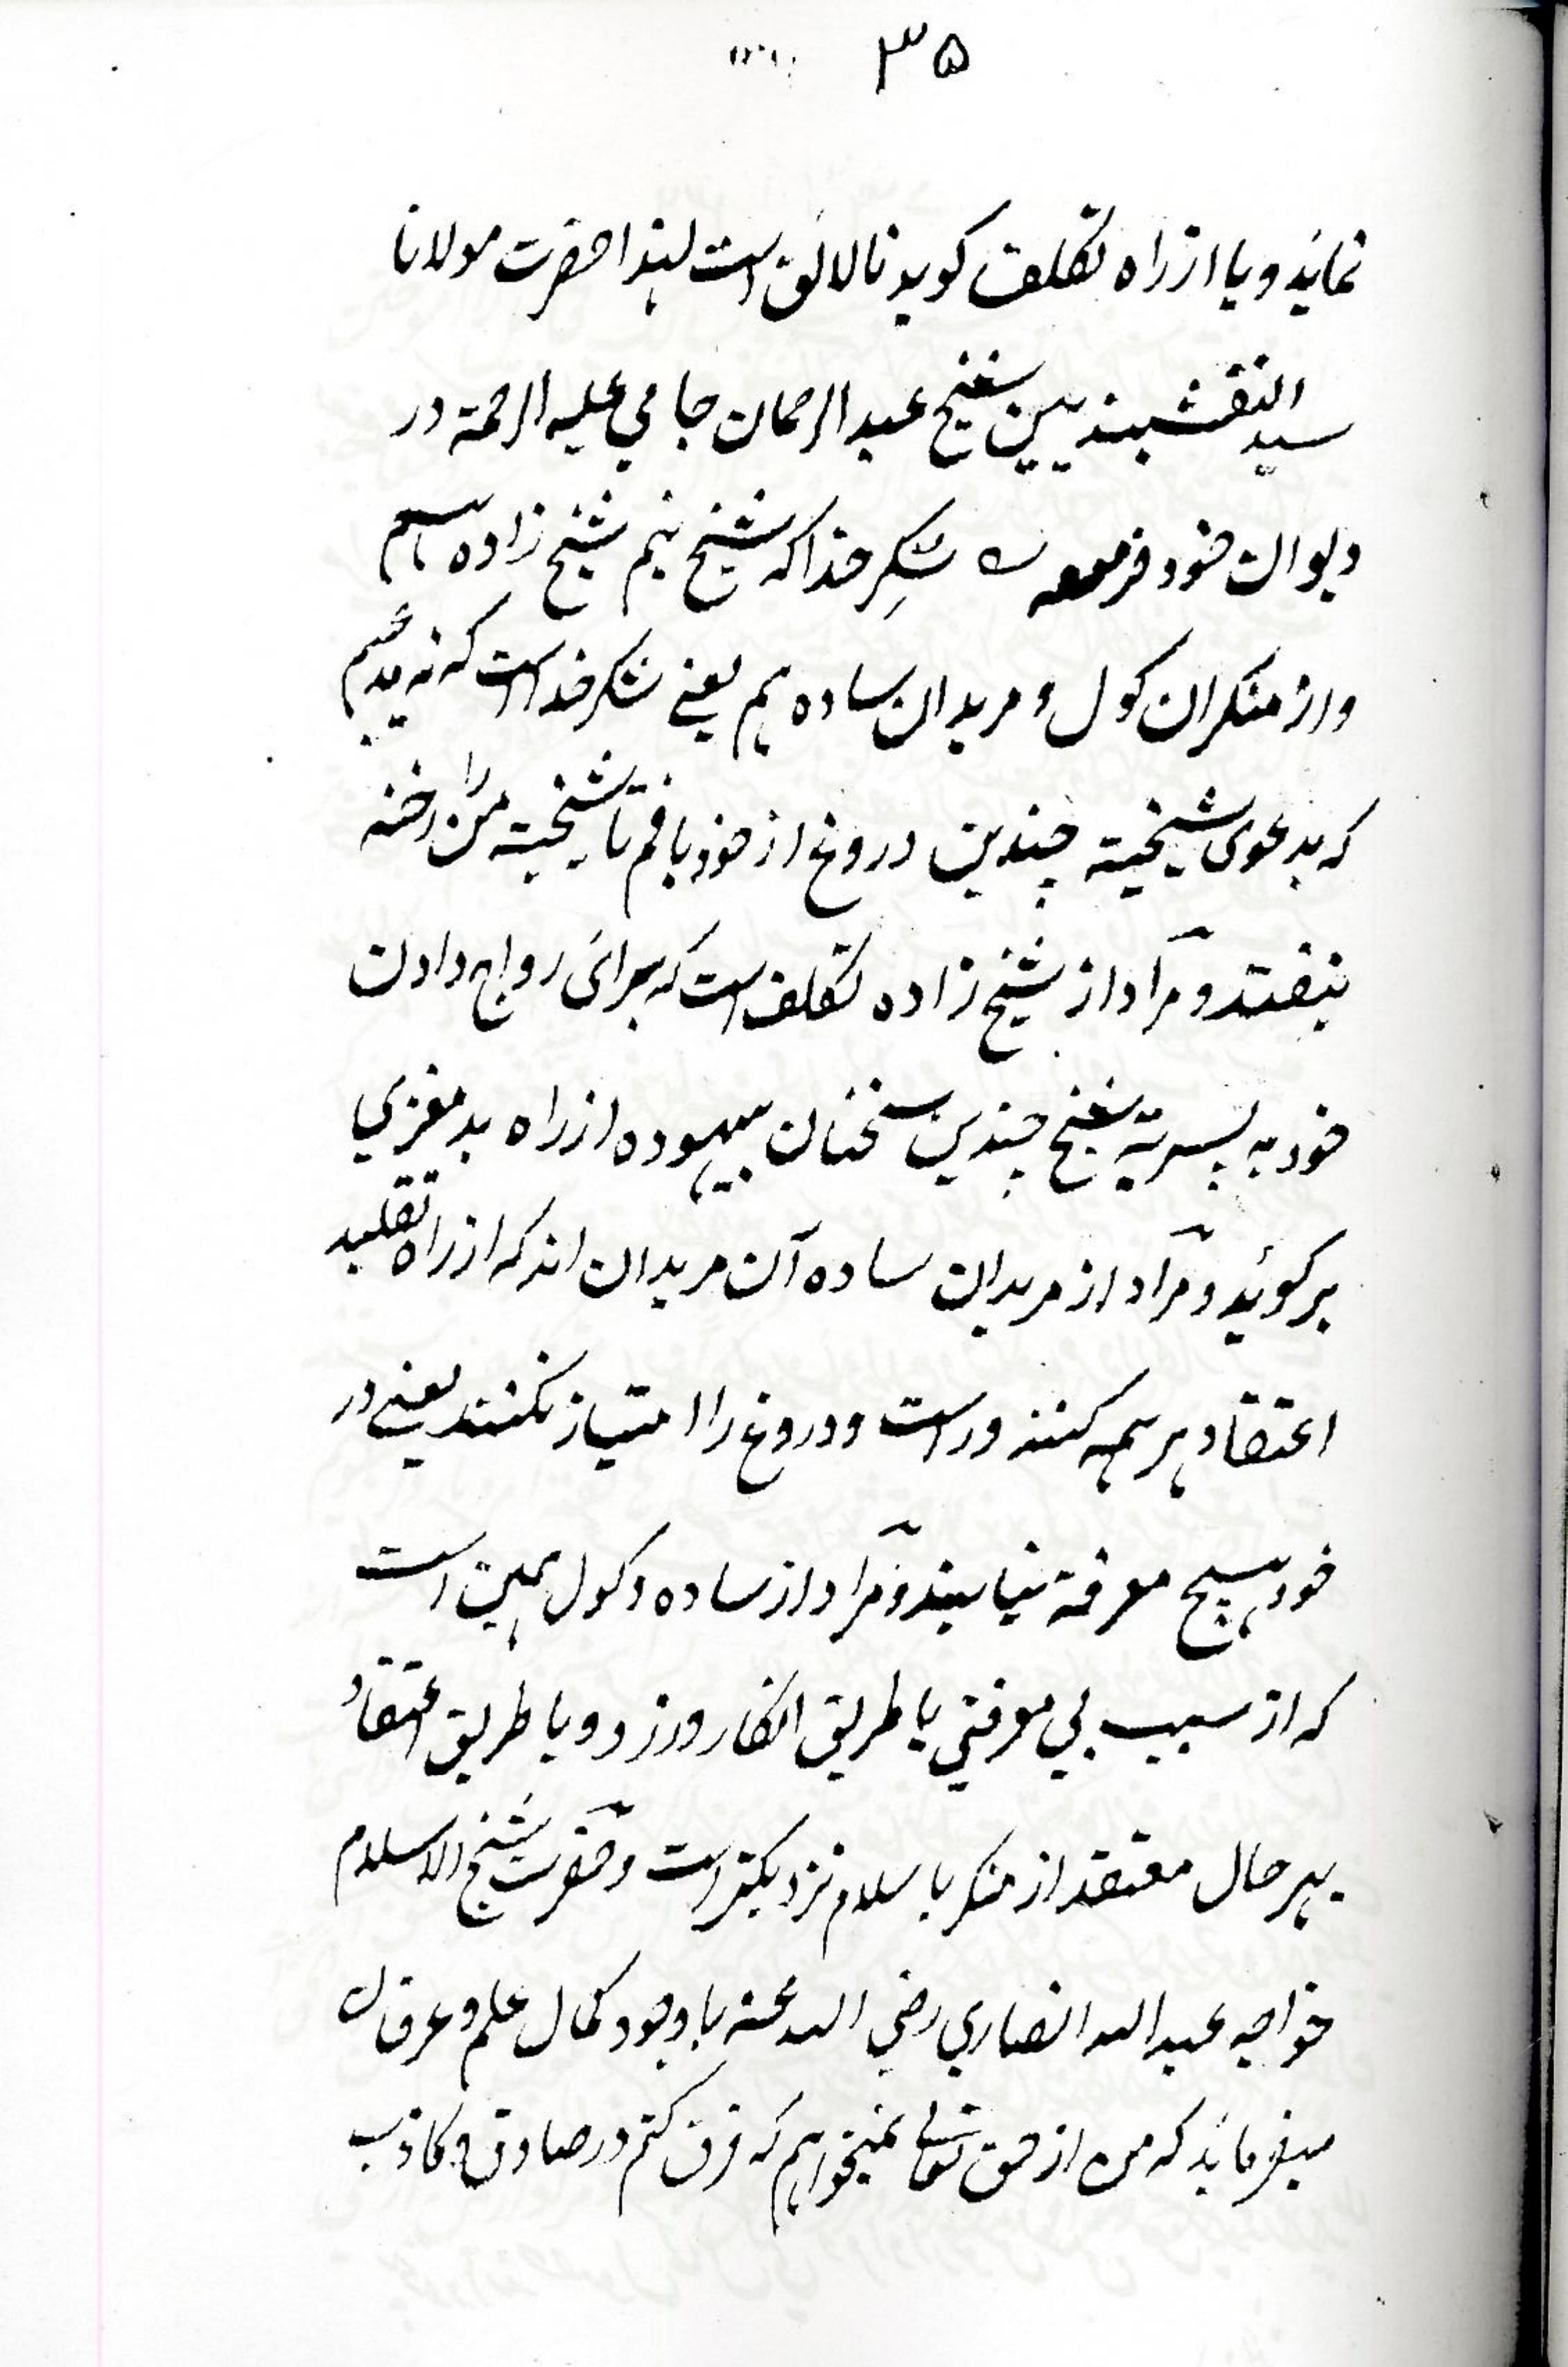 ۳۵
نماید و یا از راه تکلف کوید نا لائق است لہذا حضرت مولانا
سید النقشبندیین شیخ عبد الرحمان جامی علیہ الرحمة در
دیوان خود فرموده شکرِ خدا که شیخ نیم شیخ زاده ہم
واز منکران کول و مریدان ساده ہم یعنے شکر خداست که نه
که بدعوی شیخیة چندین دروغ از خود بافم تا شیخیة من را رخنه
نیفتد و مراد از شیخ زاده تکلف است که برائ رواج دادن
خود به پسریة شیخ چندین سخنان بیہوده از راه بدمغزی
برکوید و مراد از مریدان ساده آن مریدان اند که از راه تقلید
اعتقاد بر ہمه کنند و راست و دروغ را امتیاز نکنند یعنے در
خود ہیچ معرفة نیابند و مراد از ساده و کول ہمین است
که از سبب بی معرفتی یا طریق انکار ورزد و یا طریق اعتقاد
بہر حال معتقد از منکر باسلام نزدیکتر است و حضرت شیخ الاسلام
خواجه عبد الله انصاری رضی الله عنه با وجود کمال علم و عرفان
میفرماید که من از حق تعالی نمیخواہم که فرق کنم در صادق و کاذب